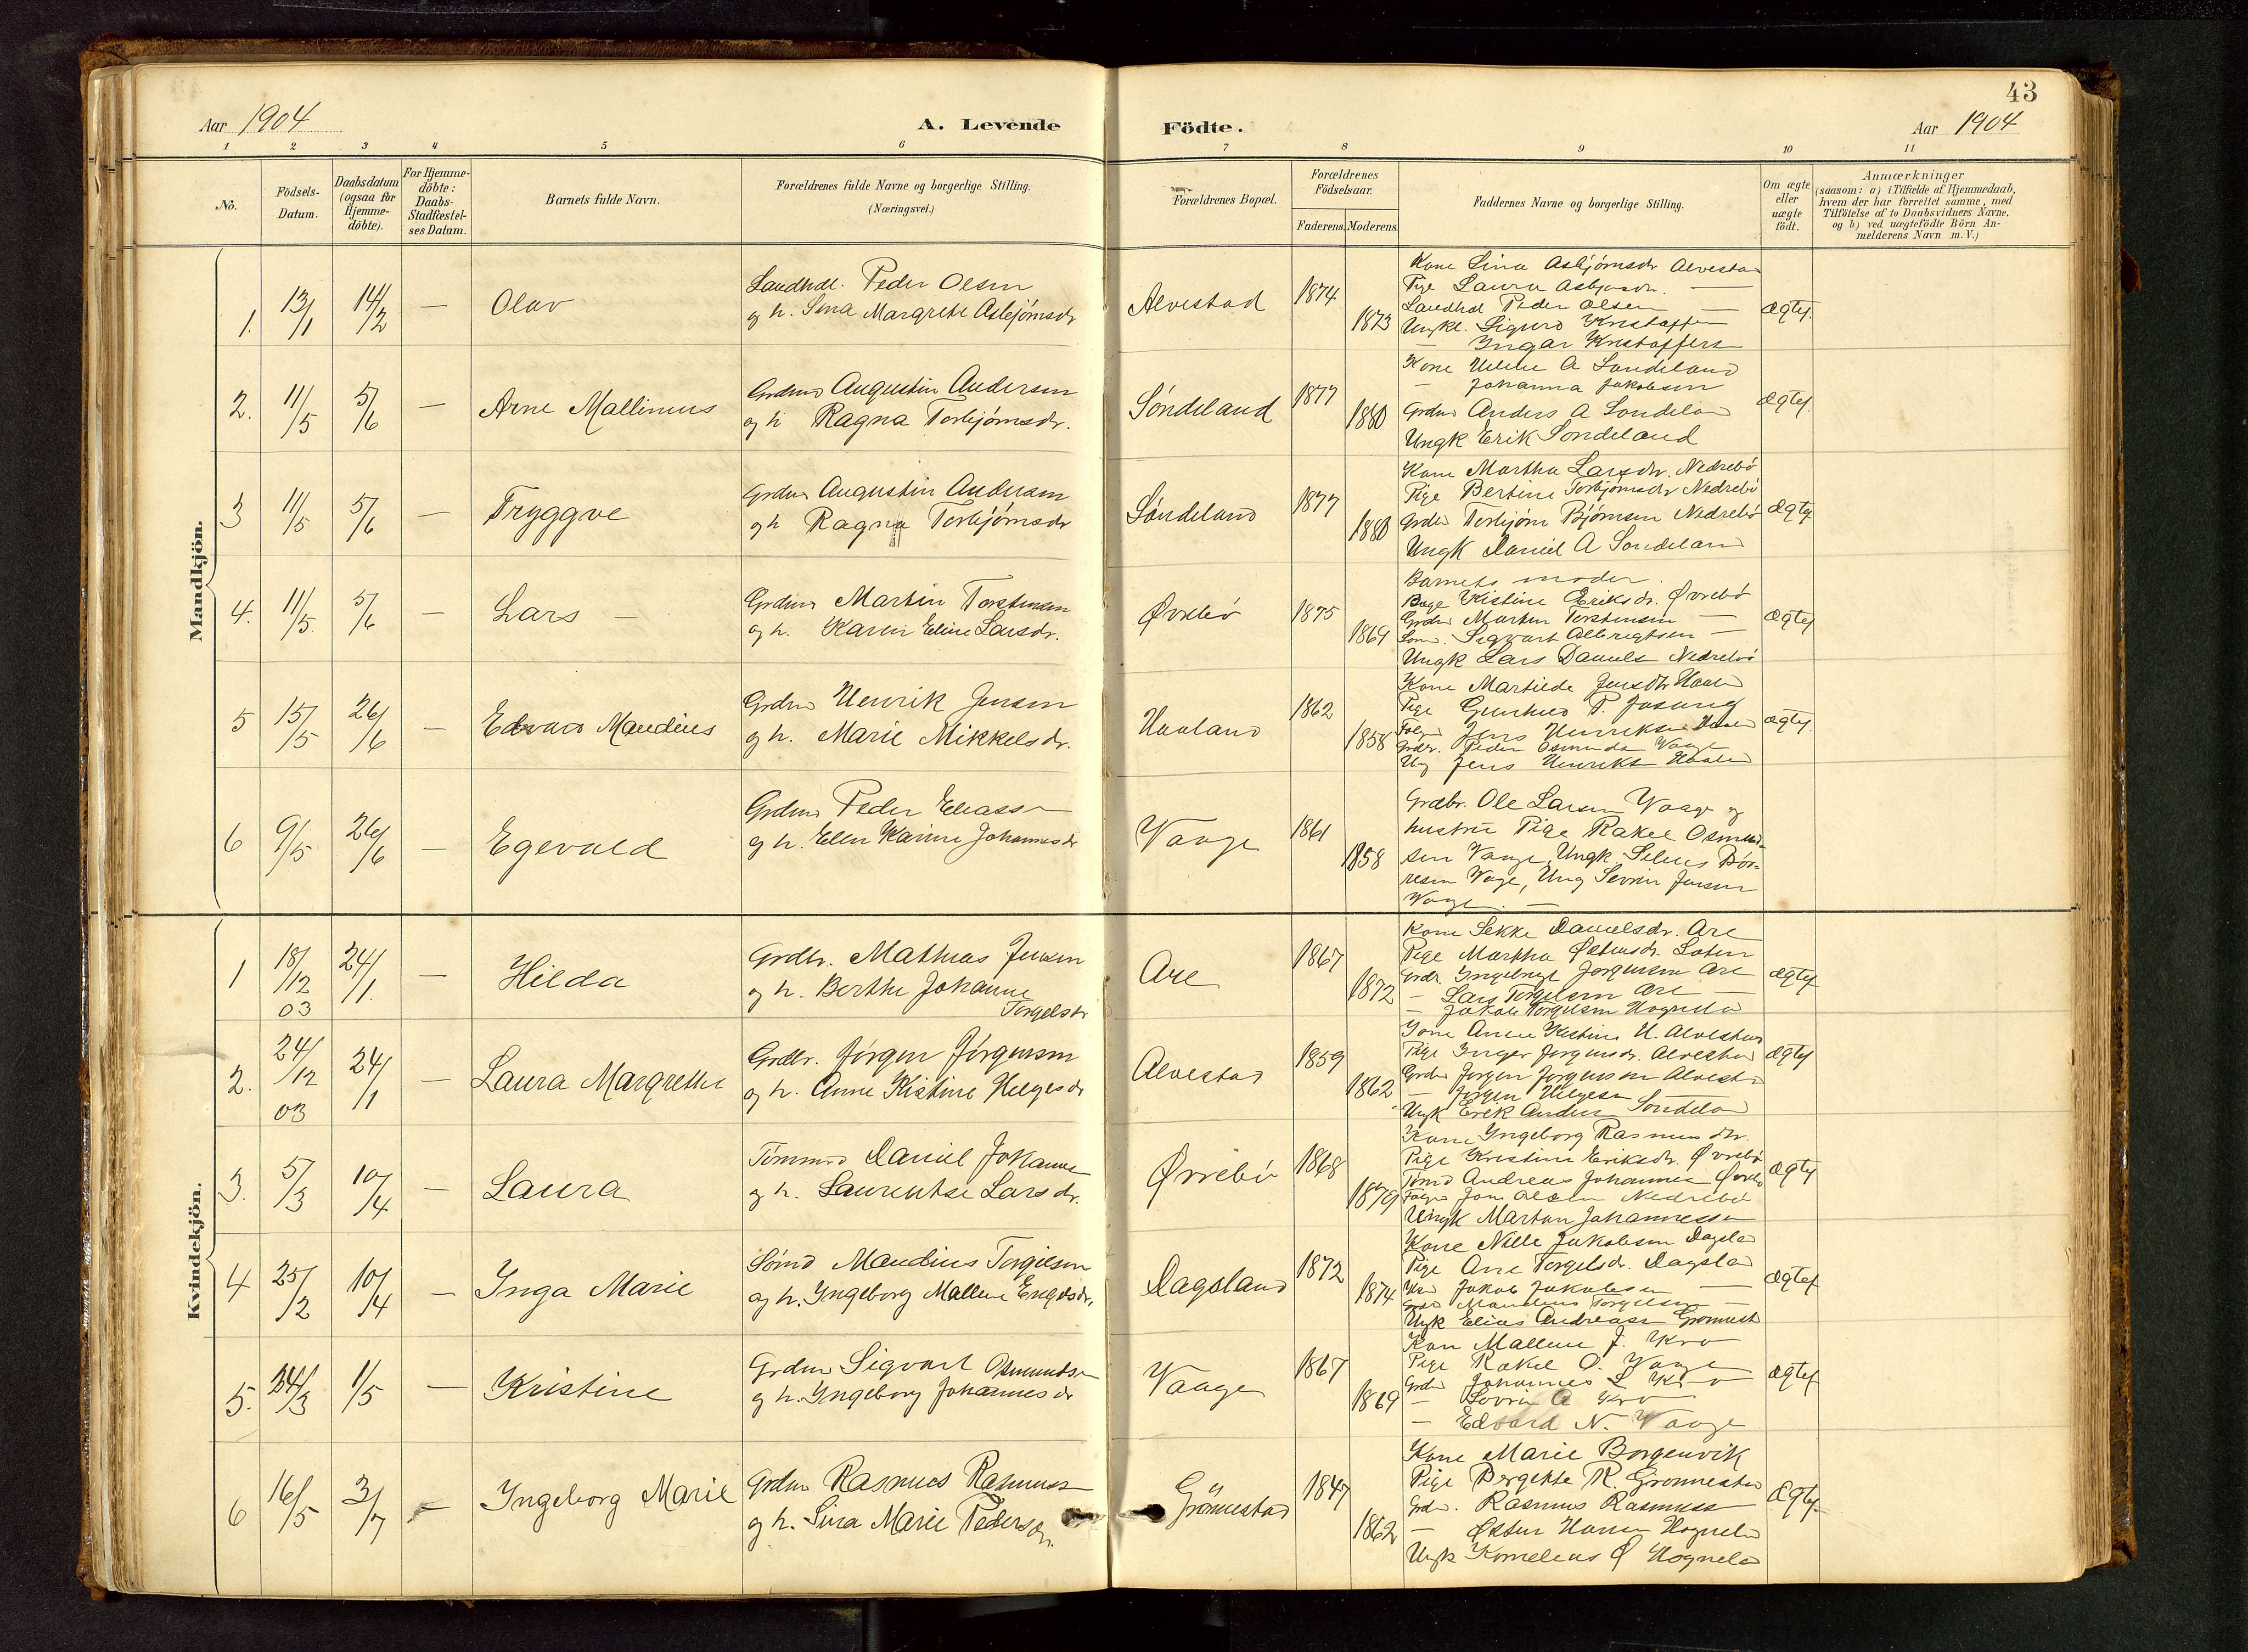 43
Aar 1904
A. Levende Födte.
Aar 1904
1 2 3 4 5 6 7 8 9 10 11
No.
Födsels-Datum.
Daabsdatum (ogsaa for Hjemme-döbte).
For Hjemme-döbte: Daabs-Stadfæstel-ses Datum.
Barnets fulde Navn.
Forældrenes fulde Navne og borgerlige Stilling.
(Næringsvei.)
Forældrenes Bopæl.
Forældrenes Födselsaar.
Faderens. Moderens.
Faddernes Navne og borgerlige Stilling.
Om ægte eller uægte födt.
Anmærkninger
(saasom: a) i Tilfælde af Hjemmedaab,
hvem der har forrettet samme, med
Tilföielse af to Daabsvidners Navne.
og b) ved uægtefödte Börn An-
melderens Navn m. V.)
Mandkjön.
1. 13/1 14/2 — Olav
Landhdl. Peder Olsen
og h. Sina Margrete Asbjørnsdr
Alvestad 1874 1873
Kone Sina Asbjørnsdr Alvestad
Pige Laura Asbjørnsdr. —
Landhdl Peder Olsen —
Ungk. Sigurd Kristoffersen
— Ingar Kristoffers
Ægtef.
2. 11/5 5/6 — Arne Mallinius
Grdmd Augustin Andersen
og h Ragna Torbjørnsdr.
Søndeland 1877 1880
Kone Helene A Søndeland
— Johanna Jakobsen
Grdmd Anders A Søndeland
Ungk Erik Søndeland
Ægtef.
3 11/5 5/6 — Tryggve
Grdmd Augustin Andersen
og h Ragna Torbjørnsdr
Søndeland 1877 1880
Kone Martha Larsdr. Nedrebø
Pige Bertine Torbjørnsdr Nedrebø
Grdbr Torbjørn Bjørnsen Nedrebø
Ungk Daniel A Søndeland
Ægtef
4. 11/5 5/6 — Lars —
Grdmd Martin Torstensen
og h. Karen Eline Larsdr.
Øvrebø 1875 1869
Barnets moder.
Pige Kistine Eriksdr. Øvrebø
Grdmd Martin Torstensen —
Sigvart Albrigtsen —
Ungk Lars Daniels Nedrebø
Ægtef
5 15/5 26/6 — Edvard Maudius
Grdmd Henrik Jensen
og h. Marie Mikkelsdr.
Haaland 1862 1858
Kone Martilde Jensdtr Haaland
Pige Gunhild P. Jøsang
Jens Henriksen Haaland
Grdbr. Peder Osmundsen Vaage
Ung Jens Henriks Haaland
Ægtef.
6 9/5 26/6 — Egevald
Grdmd Peder Eliassen
og h. Ellen Karine Johannesdr
Vaage 1861 1858
Grdbr. Ole Larsen Vaage og
hustru Pige Rakel Osmund-
sen Vaage, Ungk. Selius Bør-
resen Vage, Ung Sevrin Jensen
Vaage. —
Kvindekjön.
1 18/12 03 24/1. — Hilda
Grdbr. Mathias Jensen
og h. Berthe Johanne
Torgelsdr
Are 1867 1872
Kone Sekke Danielsdr. Are
Pige Martha Østensdr.
Grdbr. Ingebregt Jørgensen Are
— Lars Torgelsen Are —
— Jakob Torgelsen Hognela
Ægtef
2. 24/12 03 24/1 — Laura Margrethe
Grdbr. Jørgen Jørgensen
og h. Anne Kistine Helgesdr
Alvestad 1859 1862
Kone Anne Kistine H. Alvestad
Pige Inger Jørgensdr. Alvestad
Grdbr Jørgen Jørgensen Alvestad
— Jørgen Helgesen
Ungk Erik Anders Søndeland
Ægtef
3. 5/3 10/4 — Laura
Tømmmd Daniel Johannes
og h. Laurentse Larsdr.
Øvrebø 1868 1879
Kone Ingeborg Rasmusdtr.
Pige Kristine Eriksdr. Øvrebø
Tømd Andreas Johannes Øvrebø
Jon Olsen Nedrebø
Ungk Martin Johannessen
Ægtef
4 25/2 10/4 — Inga Marie
Sømd Maudius Torgelsen
og h. Ingeborg Mallene Engelsdr.
Dagsland 1872 1874
Kone Nille Jakobsen Dagsland
Pige Ane Torgelsdr. Dagsland
Jakob Jakobsen —
Maudius Torgelsen —
Ungk Elias Andreas Grønnest
Ægtef
5. 24/3 1/5 — Kristine
Grdmd Sigvart Osmundsen
og h. Ingeborg Johannesdr
Vaage 1867 1869
Kone Mallene J. Kro
Pige Rakel O. Vaage
Grdbr Johannes L Kro
— Sevrin A Kro
— Edvard N. Vaage
Ægtef
6 16/5 3/7 — Ingeborg Marie
Grdmd Rasmus Rasmus
og h. Sina Marie Pedersdr.
Grønnestad 1847 1862
Kone Marie Borgenvik
Pige Bergitte R. Grønnestad
Grdbr. Rasmus Rasmuss
— Østen Hansen Hognela
Ungk Kornelius Ø Hognela
Ægtef